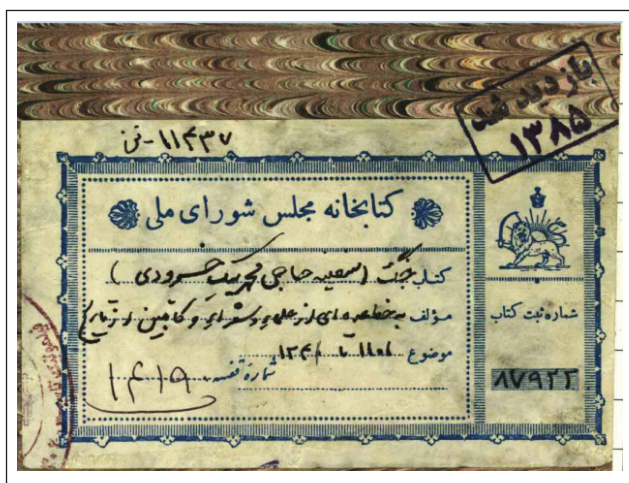 بازدید شد
۱۳۸۵
۱۱۴۳۷-ف
کتابخانه مجلس شورای ملی
کتاب جنگ (سفینه حاجی محمد بیک خسرودی)
مؤلف بخط عده‌ای از علماء و شعراء و کاتبین از تاریخ
موضوع
شماره قفسه ۱۴۱۵
شماره ثبت کتاب
۸۷۹۲۲